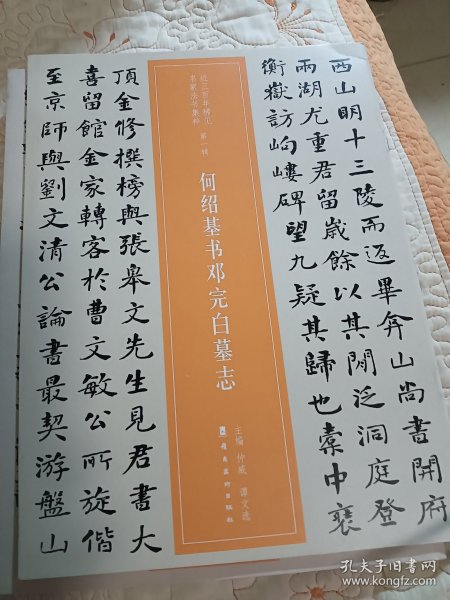 西山明十三陵而返畢弇山尚書開府
兩湖尤重君留歲餘以其閒泛洞庭登
衡嶽訪岣嶁碑望九疑其歸也橐中裒
近三百年稀见
名家法书集粹 第一辑
何绍基书邓完白墓志
主编 仲威 谭文选
岭南美术出版社
頂金修撰榜與張皋文先生見君書大
喜留館金家轉客於曹文敏公所旋偕
至京師與劉文清公論書最契游盤山
孔夫子旧书网
www.kongfz.com